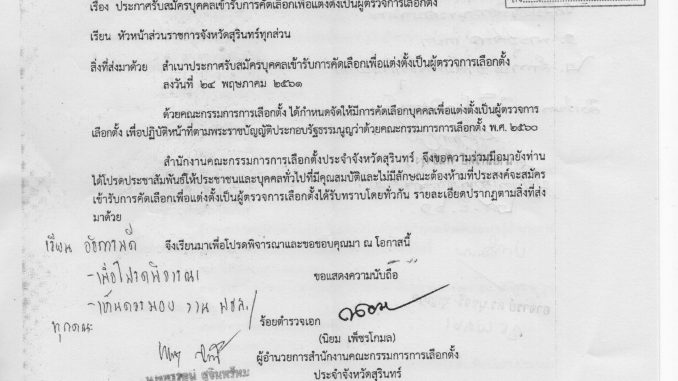 เรื่อง ประกาศรับสมัครบุคคลเข้ารับการคัดเลือกเพื่อแต่งตั้งเป็นผู้ตรวจการเลือกตั้ง
เรียน หัวหน้าส่วนราชการจังหวัดสุรินทร์ทุกส่วน
สิ่งที่ส่งมาด้วย สำเนาประกาศรับสมัครบุคคลเข้ารับการคัดเลือกเพื่อแต่งตั้งเป็นผู้ตรวจการเลือกตั้ง
ลงวันที่ ๒๔ พฤษภาคม ๒๕๖๑
ด้วยคณะกรรมการการเลือกตั้ง ได้กำหนดจัดให้มีการคัดเลือกบุคคลเพื่อแต่งตั้งเป็นผู้ตรวจการ
เลือกตั้ง เพื่อปฏิบัติหน้าที่ตามพระราชบัญญัติประกอบรัฐธรรมนูญว่าด้วยคณะกรรมการการเลือกตั้ง พ.ศ. ๒๕๖๐
สำนักงานคณะกรรมการการเลือกตั้งประจำจังหวัดสุรินทร์ จึงขอความร่วมมือมายังท่าน
ได้โปรดประชาสัมพันธ์ให้ประชาชนและบุคคลทั่วไปที่มีคุณสมบัติและไม่มีลักษณะต้องห้ามที่ประสงค์จะสมัคร
เข้ารับการคัดเลือกเพื่อแต่งตั้งเป็นผู้ตรวจการเลือกตั้งได้รับทราบโดยทั่วกัน รายละเอียดปรากฏตามสิ่งที่ส่ง
มาด้วย
จึงเรียนมาเพื่อโปรดพิจารณาและขอขอบคุณมา ณ โอกาสนี้
เรียน
-เพื่อโปรดพิจารณา
ขอแสดงความนับถือ
-เห็นควรมอบ งาน
ร้อยตำรวจเอก
(นิยม เพ็ชรโกมล)
ผู้อำนวยการสำนักงานคณะกรรมการการเลือกตั้ง
ประจำจังหวัดสุรินทร์